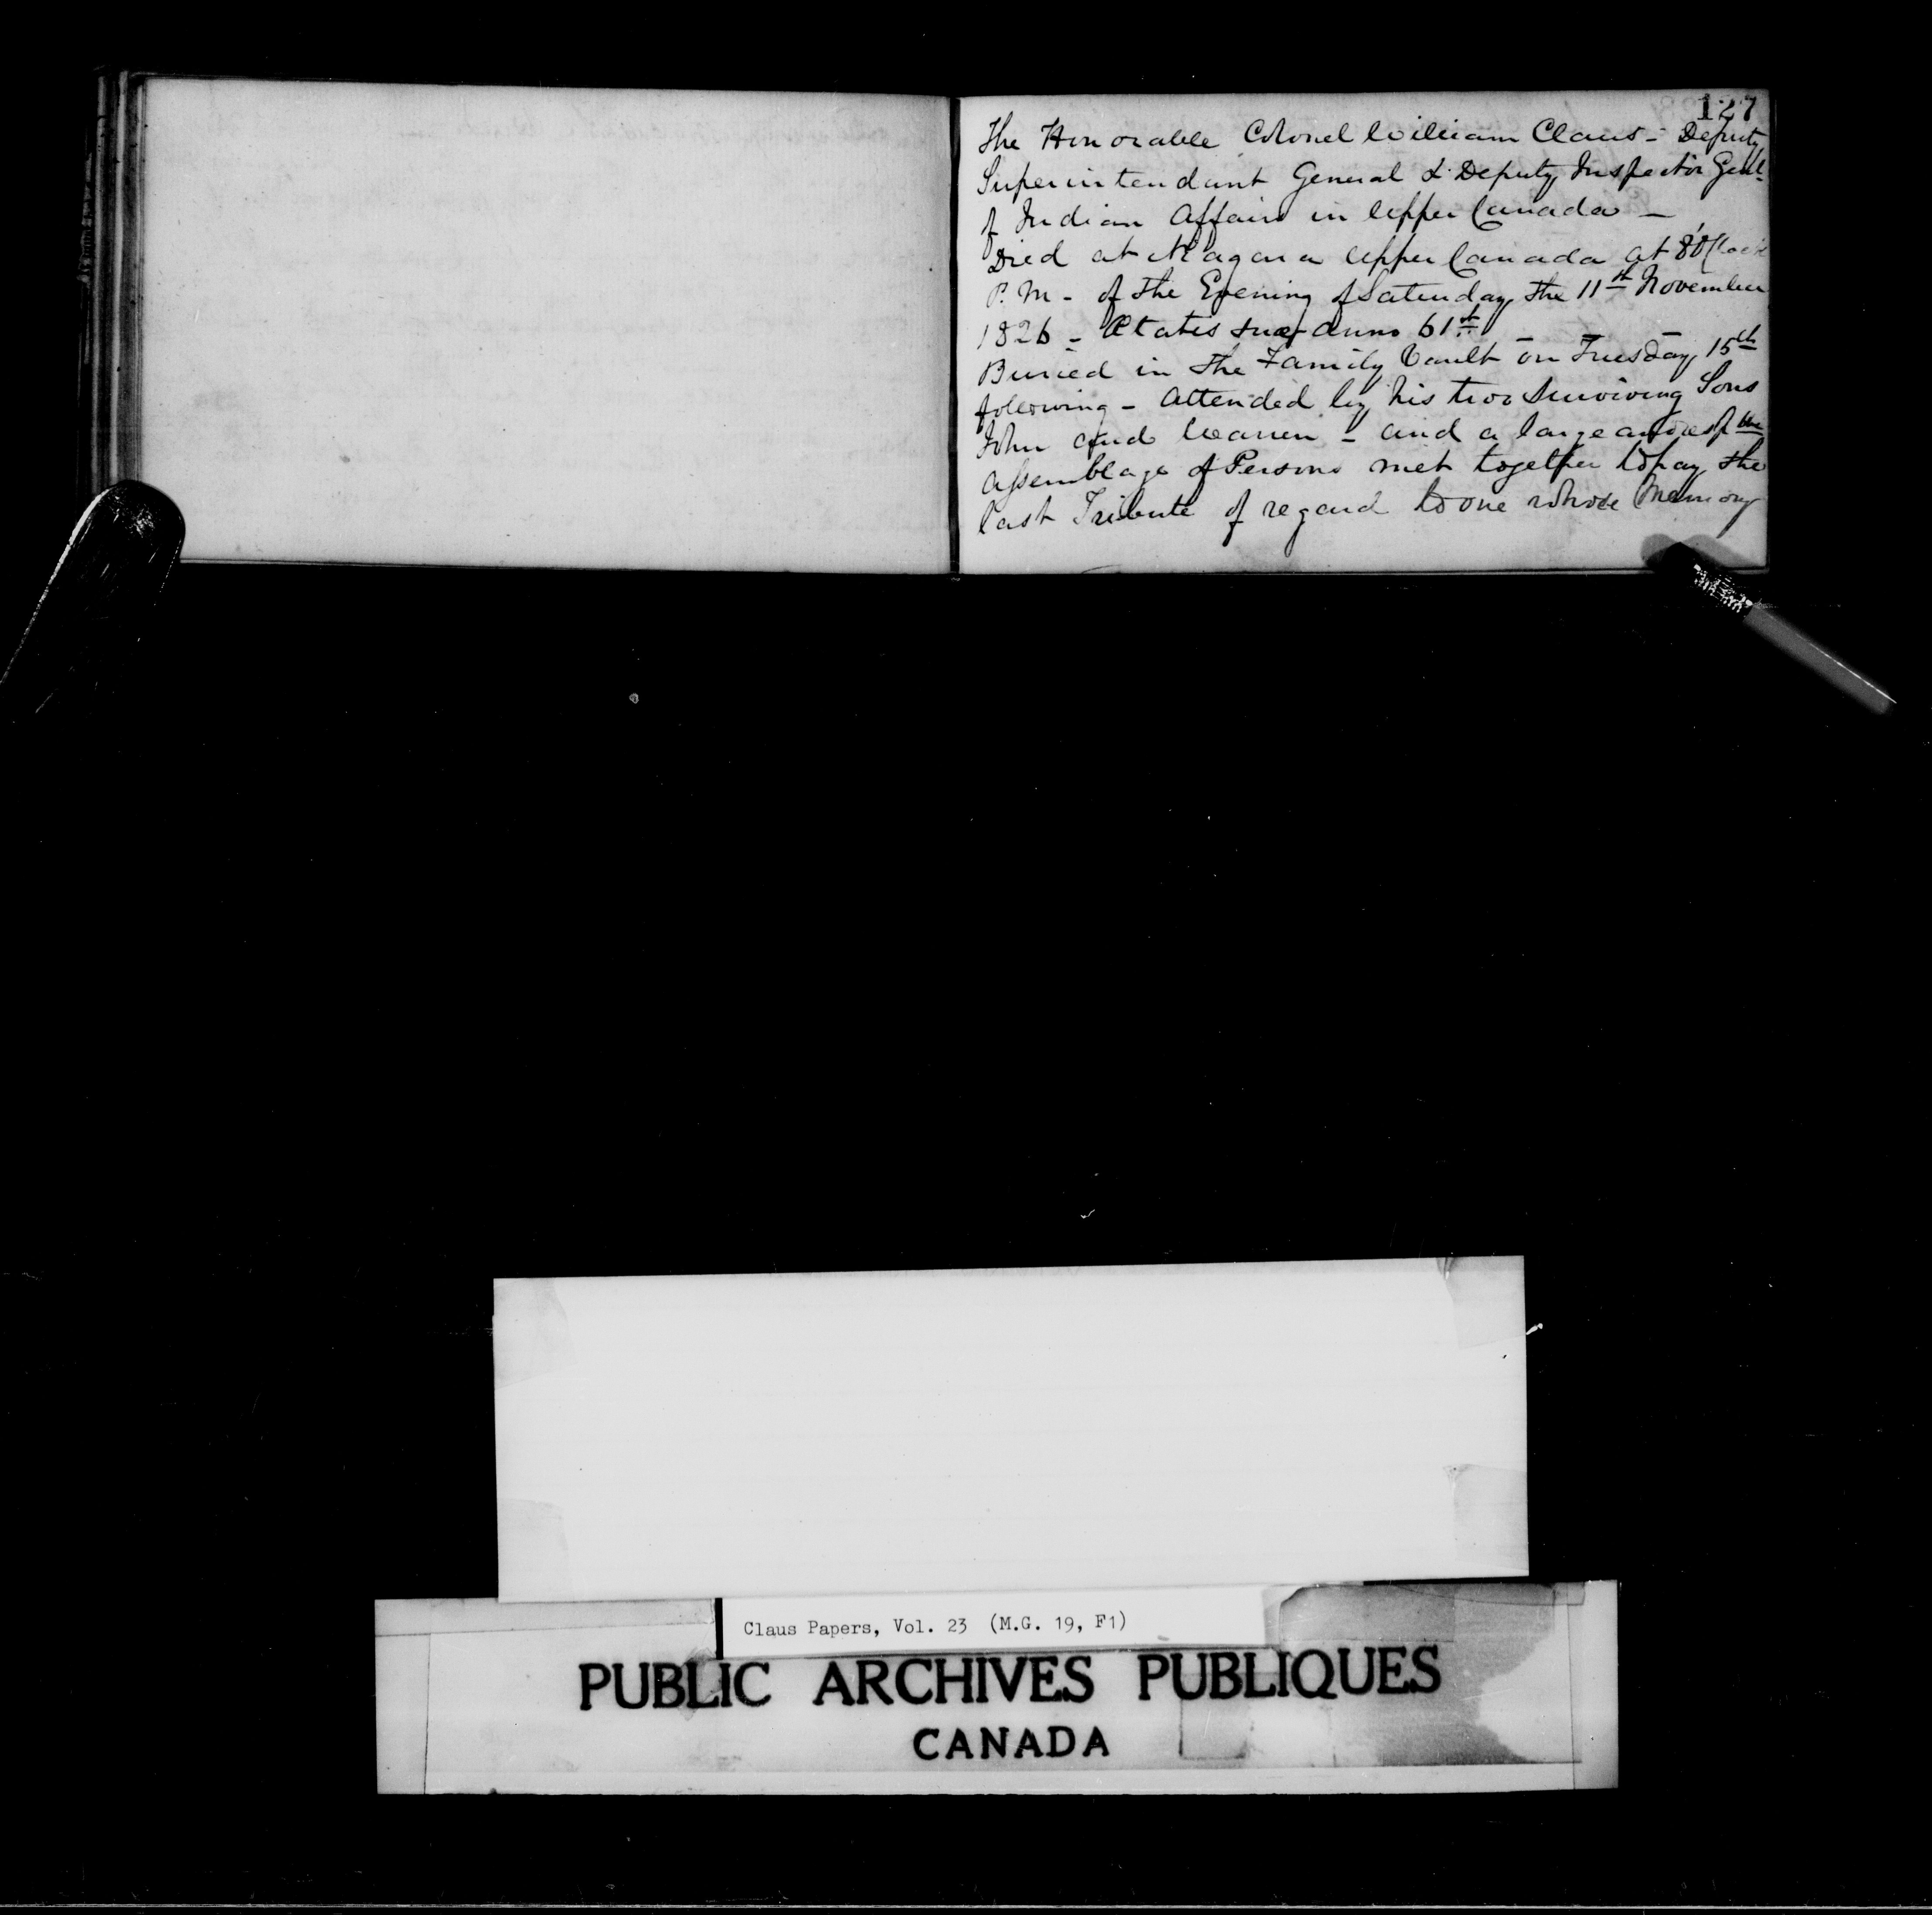 127
The Honorable Colonel William Claus - Deputy
Superintendant General & Deputy Inspector Genl.
of Indian Affairs in Upper Canada —
Died at Niagara Upper Canada at 8 O'Clock
P.M - of the Evening of Saturday the 11th November
1826 - Ætatis suæ anno 61st — —
Buried in the Family Vault on Tuesday 15th
following - Attended by his two surviving Sons
John and Warren - and a large and resp ble
assemblage of Persons met together to pay the
last Tribute of regard to one whose Memory
Claus Papers, Vol. 23 (M.G. 19, F1)
PUBLIC ARCHIVES PUBLIQUES
CANADA